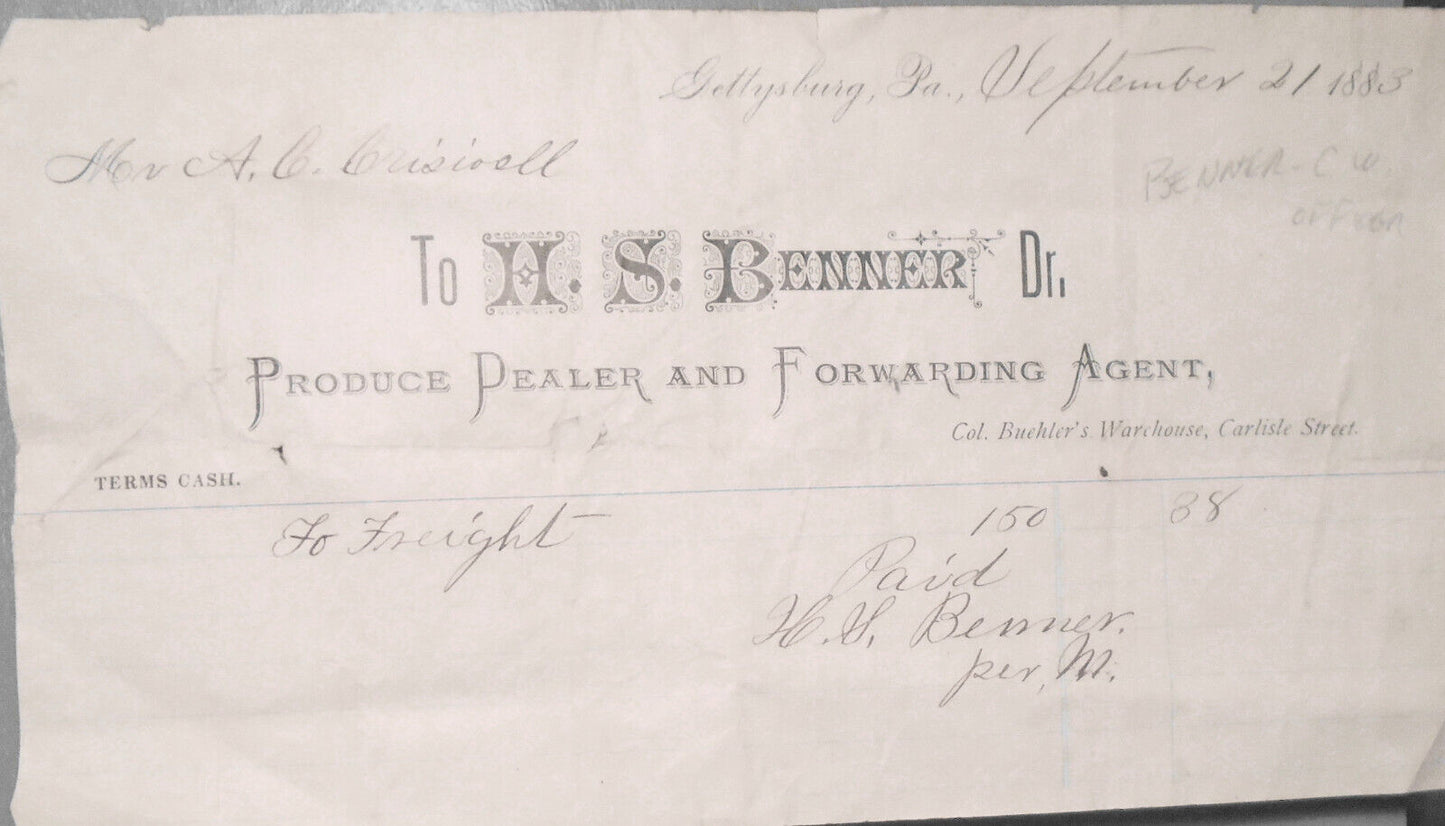 Gettysburg, Pa., September 21 1883
Mr A. C. Criswell
BENNER - C W
OFFICER
To H. S. BENNER Dr.
PRODUCE DEALER AND FORWARDING AGENT,
Col. Buehler's Warehouse, Carlisle Street.
TERMS CASH.
To Freight 150 38
Paid
H. S. Benner.
per, M.